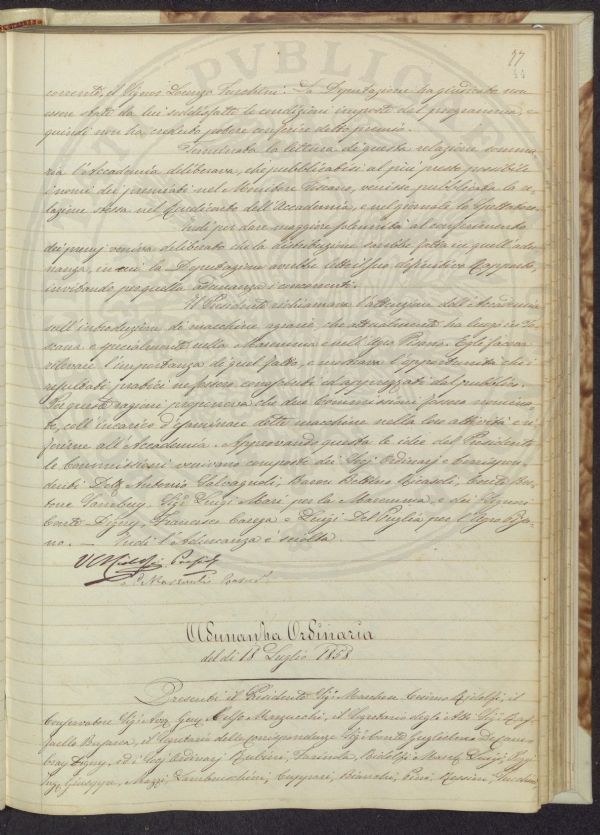 77
44
correnti, il Signor Lorenzo Turchini. La Deputazione ha giudicato non
essere state da lui soddisfatte le condizioni imposte dal programma, e
quindi non ha creduto potere conferire detto premio.
Terminata la lettura di questa relazione somma-
ria l'Accademia deliberava, che pubblicatisi al più presto possibile
i nomi dei premiati nel Monitore Toscano, venisse pubblicata la re-
lazione stessa nel Rendiconto dell'Accademia, e nel giornale lo Spettatore.
Indi per dare maggiore solennità al conferimento
dei premj veniva deliberato che la distribuzione sarebbe fatta in quell'adu-
nanza, in cui la Deputazione avrebbe letto il suo definitivo Rapporto,
invitando per quella adunanza i concorrenti.
Il Presidente richiamava l'attenzione dell'Accademia
sull'introduzione di macchine agrarie, che attualmente ha luogo in To-
scana e specialmente nella Maremma e nell'Agro Pisano. Egli faceva
rilevare l'importanza di quel fatto, e mostrava l'opportunità che i
resultati pratici ne fossero conosciuti ed apprezzati dal pubblico.
Per queste ragioni proponeva che due Commissioni fossero nomina-
te, coll'incarico d'esaminare dette macchine nella loro attività e ri-
ferirne all'Accademia. Approvando questa le idee del Presidente
le Commissioni venivano composte dei Sigg. Ordinarj e Corrispon-
denti Dott. Antonio Salvagnoli, Baron Bettino Ricasoli, Conte
Sig. Luigi Mari per la Maremma e dei Signori
Conte Digny, Francesco Carega e Luigi Del Puglia per l'Agro Pisa-
no. Indi l'Adunanza è sciolta.
Ridolfi
Adunanza Ordinaria
del dì 18 Luglio 1858
Presenti il Presidente Sig. Marchese Cosimo Ridolfi, il
Conservatore Sig. Avv. Marzucchi, il Segretario degli Atti Sig. Raf-
faello Busacca, il Segretario delle corrispondenze Sig. Conte Guglielmo De Cam-
bray Digny, ed i Sigg. Ordinarj Rubieri, Ridolfi March. Luigi,
Giuseppe, Mazzi, Lambruschini, Cuppari, Bianchi,